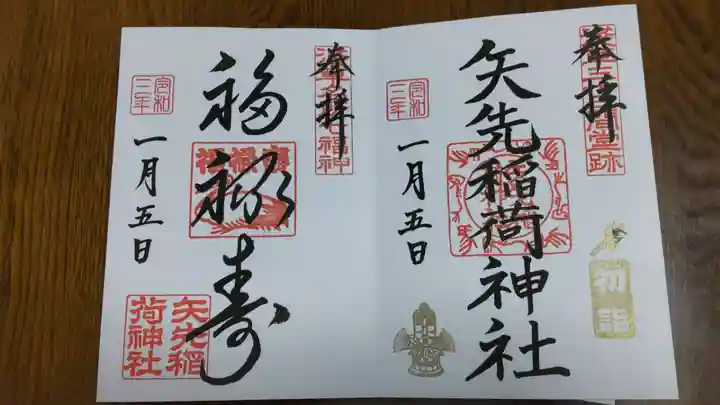 奉拝
矢先稲荷神社
令和
三年
一月五日
初詣
奉拝
福禄寿
令和
三年
一月五日
矢先稲
荷神社